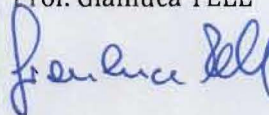 Prof. Gianluca TELL
Gianluca Tell